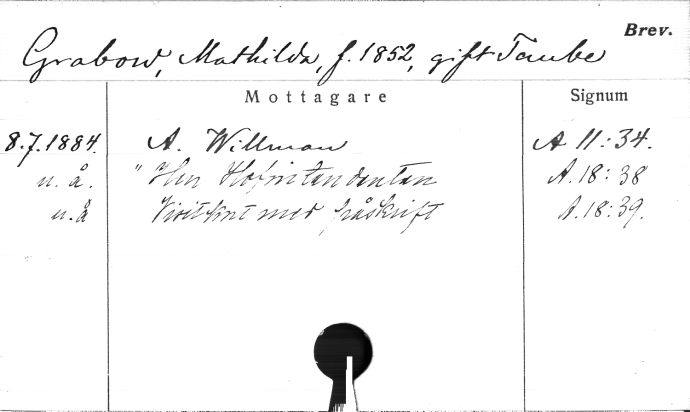 Brev.
Grabow, Mathilda, f. 1852, gift Taube
Mottagare Signum
8.7.1884. A. Willman A 11:34.
u. å. "Herr Hofintendenten A.18:38
u. å Visitkort med påskrift A.18:39.